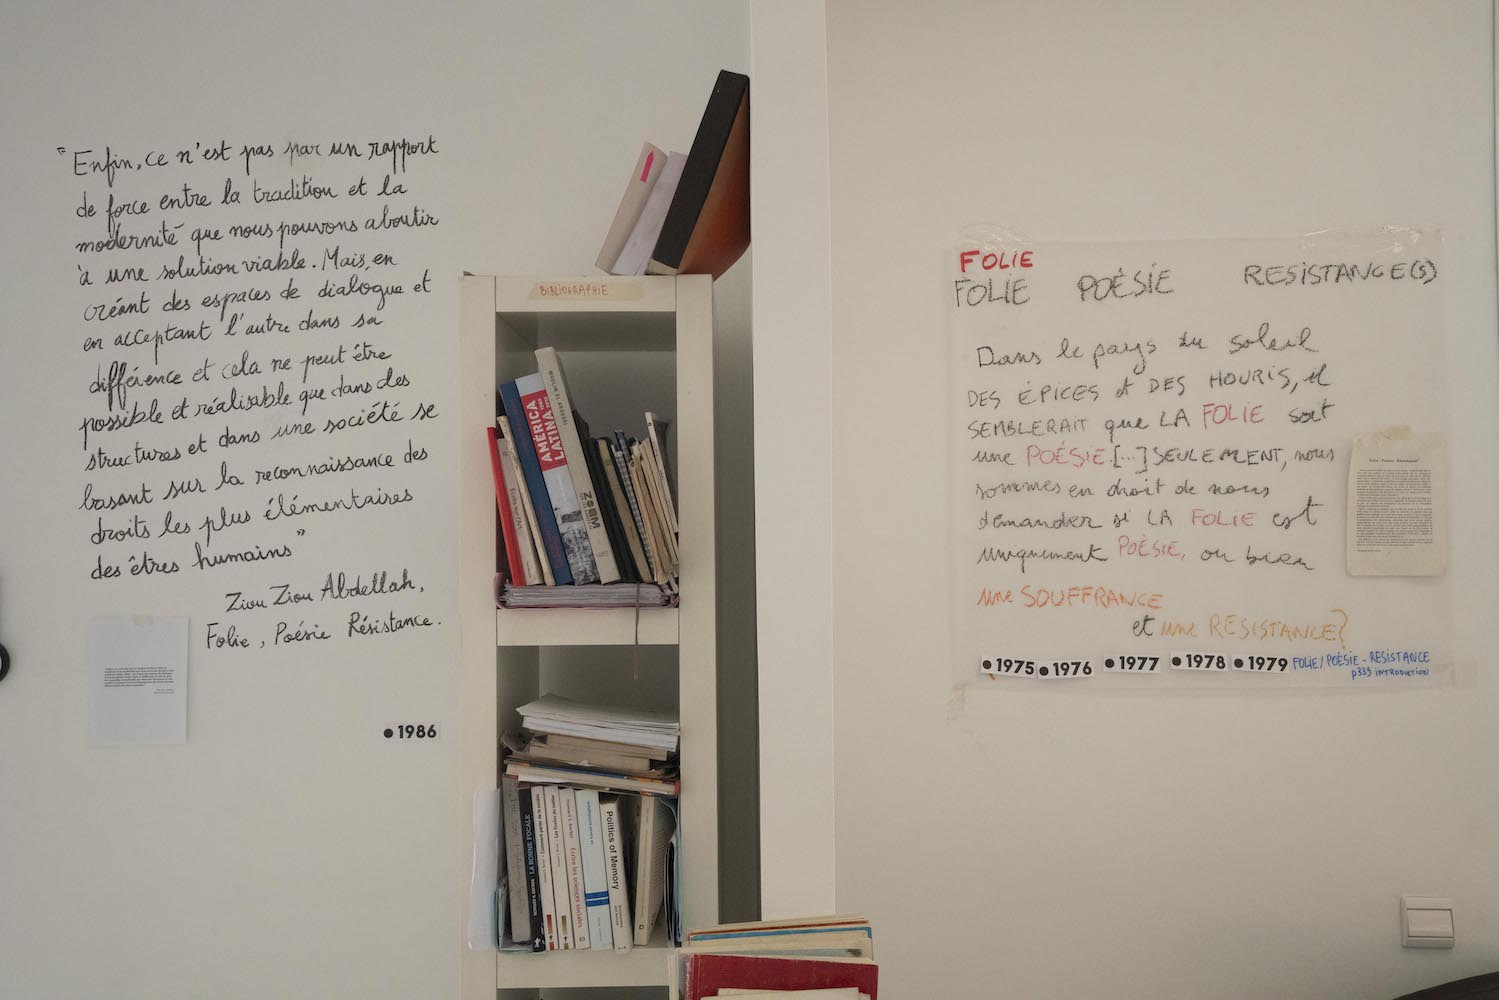 "Enfin, ce n'est pas par un rapport
de force entre la tradition et la
modernité que nous pouvons aboutir
à une solution viable. Mais, en
créant des espaces de dialogue et
en acceptant l'autre dans sa
différence et cela ne peut être
possible et réalisable que dans des
structures et dans une société se
basant sur la reconnaissance des
droits les plus élémentaires
des êtres humains"
Ziou Ziou Abdellah,
Folie, Poésie Résistance.
1986
BIBLIOGRAPHIE
AMÉRICA
LATINA
ZOOM
LA BONNE FOCALE
Les ficelles du métier
Écrire les sciences sociales
Politics of Memory
FOLIE
FOLIE POÉSIE RESISTANCE(S)
Dans le pays du soleil
DES ÉPICES et DES HOURIS, il
SEMBLERAIT que LA FOLIE soit
une POÉSIE.[...] SEULEMENT, nous
sommes en droit de nous
demander si LA FOLIE est
uniquement POÉSIE, ou bien
une SOUFFRANCE
et une RESISTANCE?
1975 1976 1977 1978 1979 FOLIE/POÉSIE-RESISTANCE
p339 INTRODUCTION